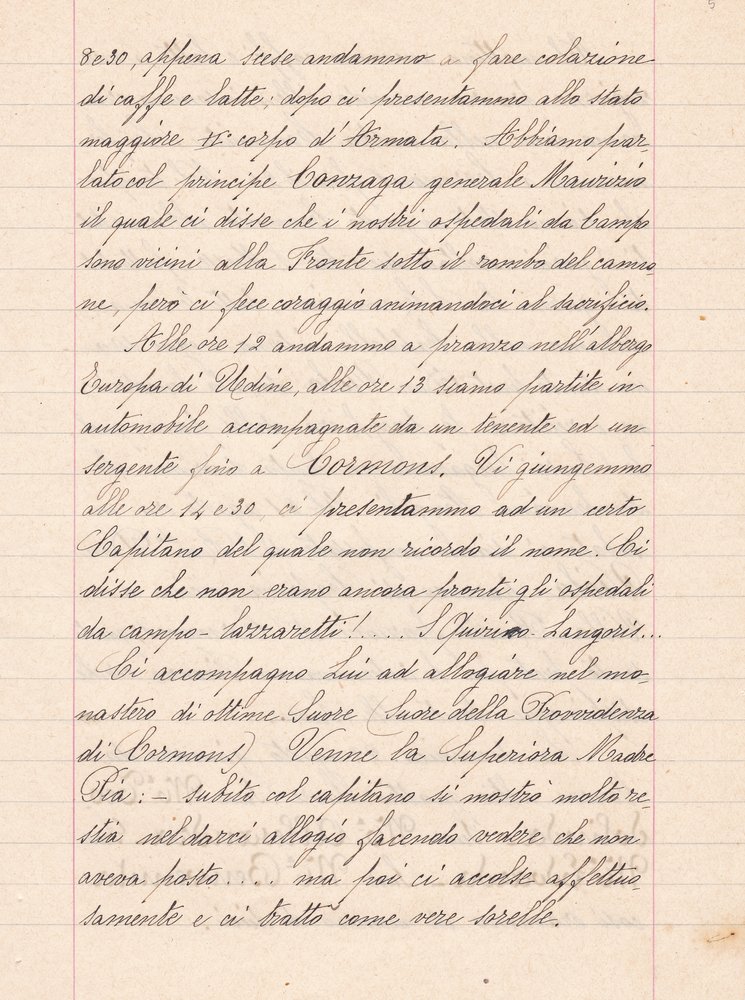 5
8 e 30, appena scese andammo a fare colazione
di caffe e latte; dopo ci presentammo allo stato
maggiore II° corpo d'Armata. Abbiamo par-
lato col principe Gonzaga generale Maurizio
il quale ci disse che i nostri ospedali da Campo
sono vicini alla Fronte sotto il rombo del canno-
ne, però ci fece coraggio animandoci al sacrificio.
Alle ore 12 andammo a pranzo nell'albergo
Europa di Udine, alle ore 13 siamo partite in
automobile accompagnate da un tenente ed un
sergente fino a Cormons. Vi giungemmo
alle ore 14 e 30, ci presentammo ad un certo
Capitano del quale non ricordo il nome. Ci
disse che non erano ancora pronti gli ospedali
da campo - lazzaretti!.... S Quirino - Langoris...
Ci accompagno Lui ad allogiare nel mo-
nastero di ottime Suore (Suore della Provvidenza
di Cormons) Venne la Superiora Madre
Pia: - subito col capitano si mostrò molto re-
stia nel darci allogio facendo vedere che non
aveva posto.... ma poi ci accolse affettuo-
samente e ci trattò come vere sorelle.